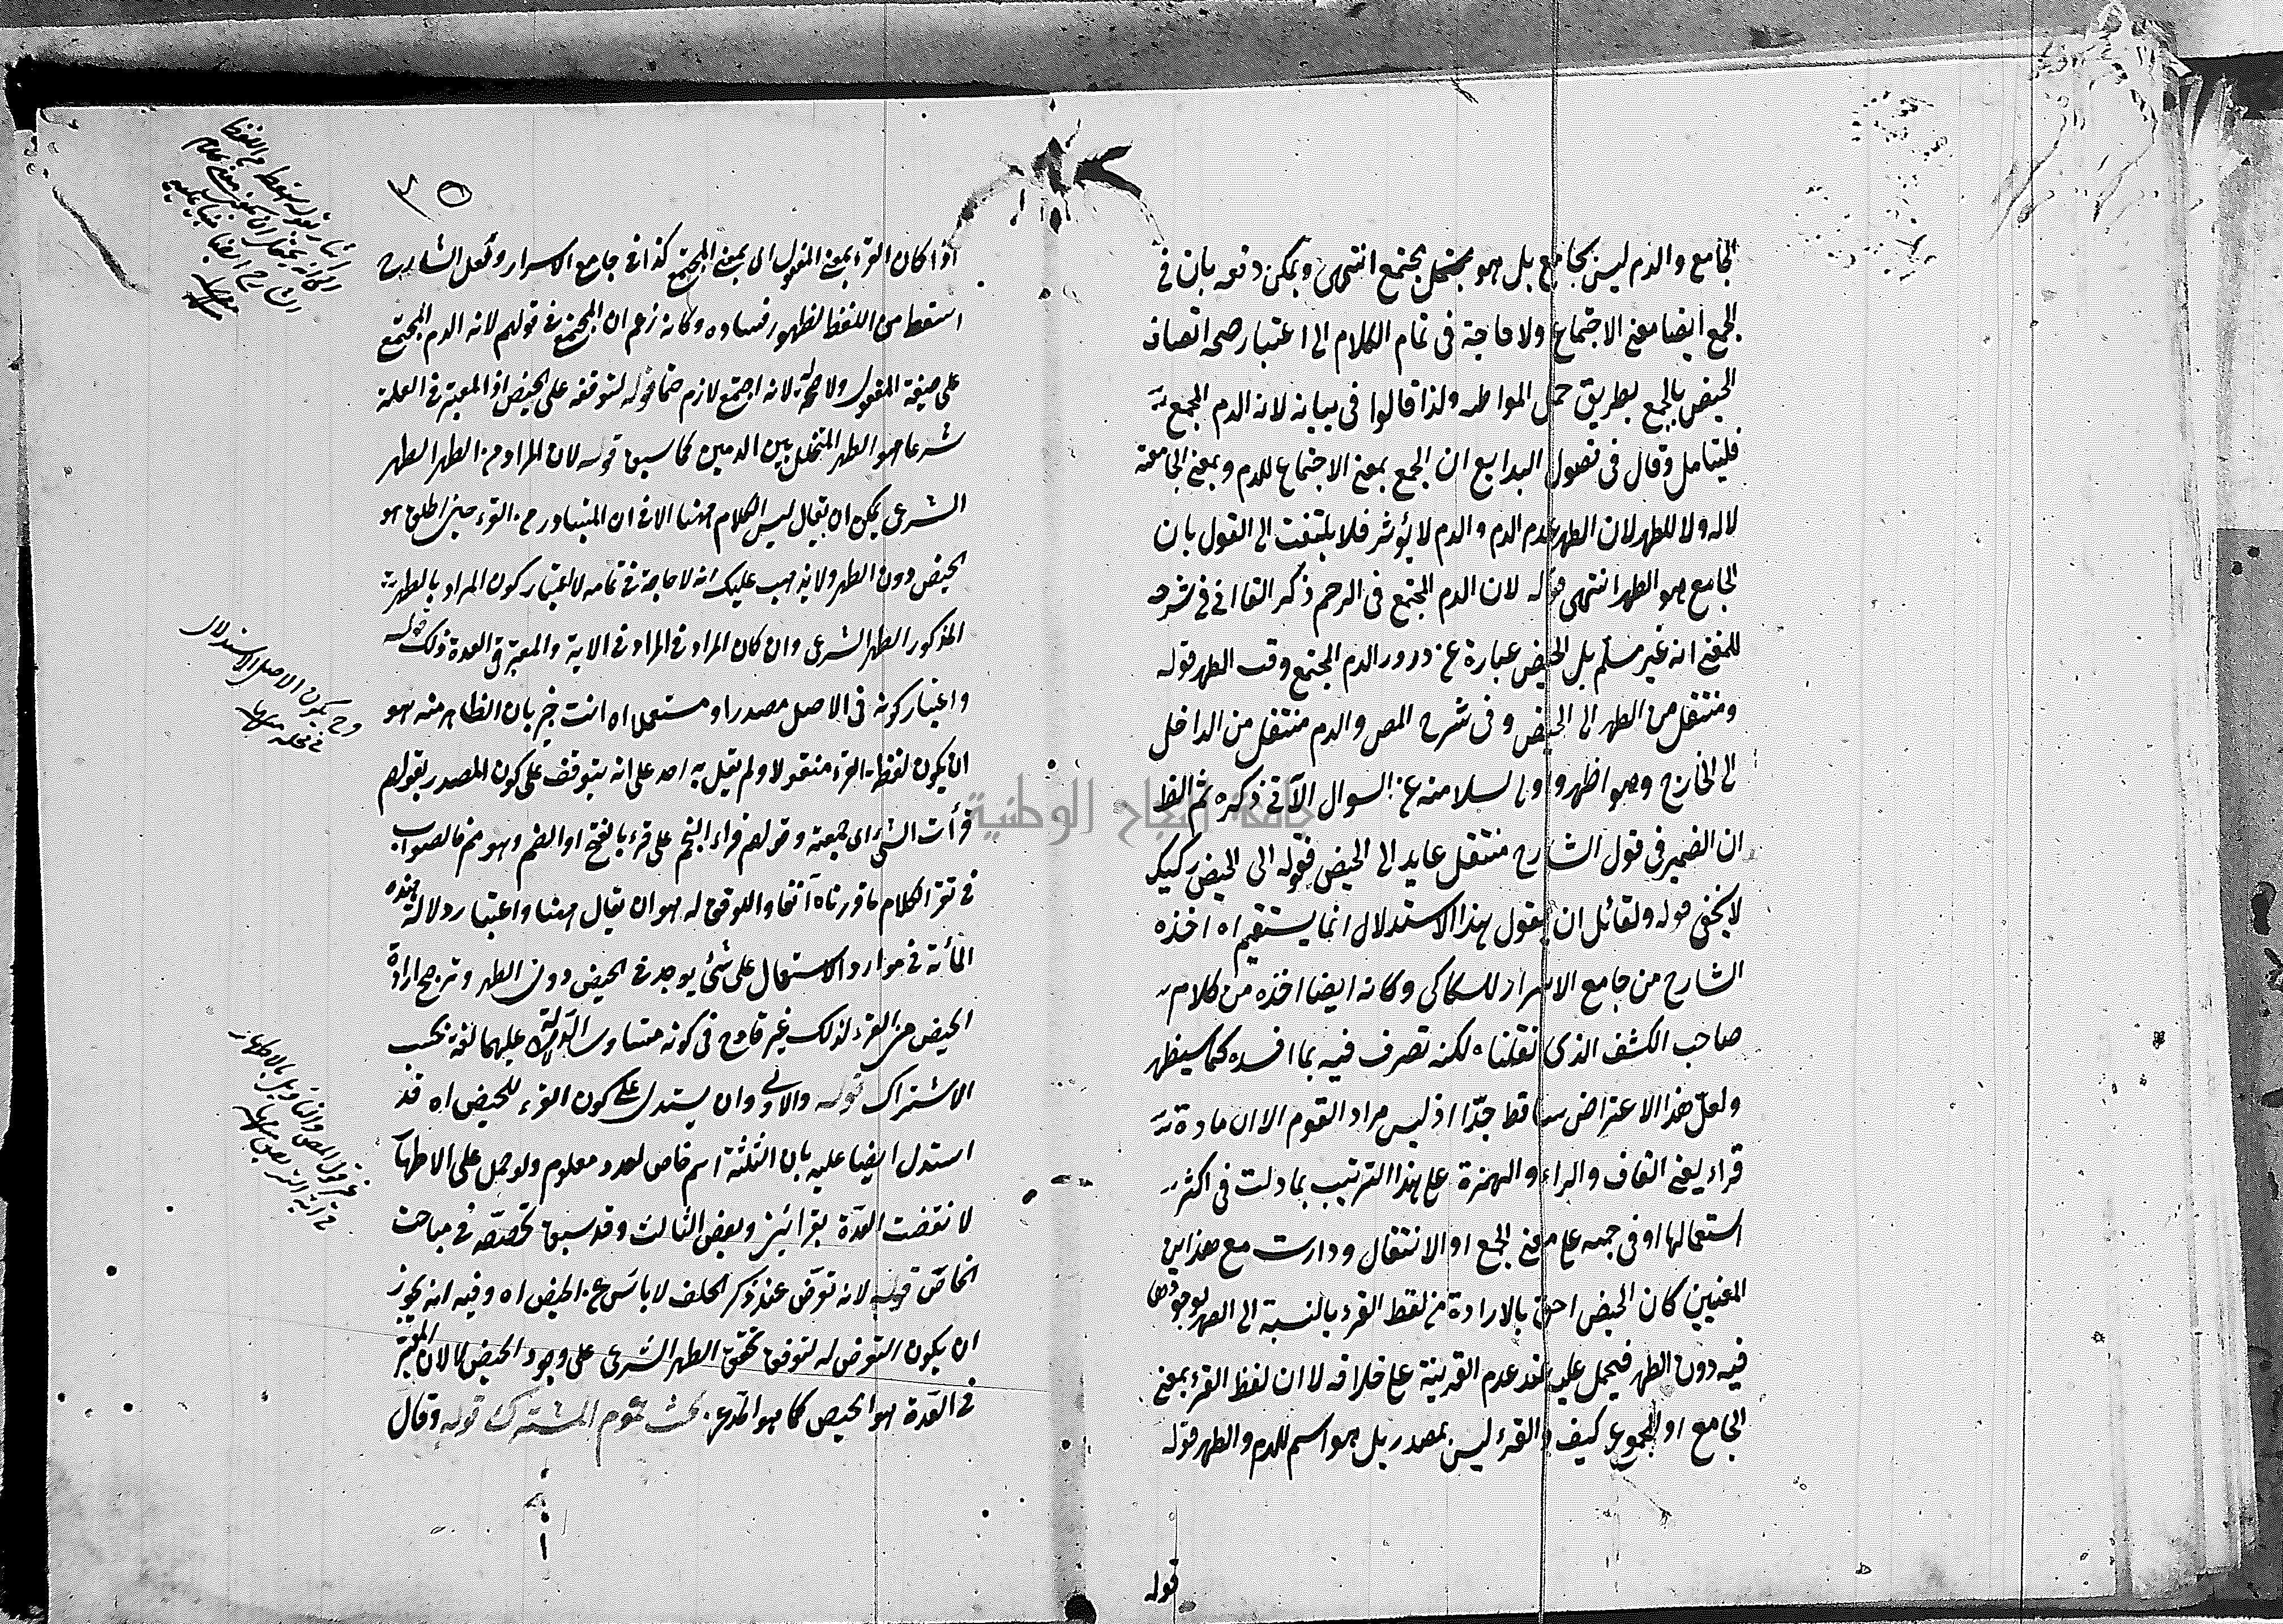 الجامع والدم ليس بجامع بل هو مجتمع انتهى ويمكن دفعه بان في
الجمع ايضا معنى الاجتماع ولا حاجة في تمام الكلام الى اعتبار صحه اتصاف
الحيض بالجمع بطريق حمل المواطاه ولذا قالوا في بيانه لانه الدم المجمع
فليتامل وقال في فصول البدايع ان الجمع بمعنى الاجتماع للدم وبمعنى الجامعية
لا له ولا للطهر لان الطهر عدم الدم والدم لا يؤثر فلا يلتفت الى القول بان
الجامع هو الطهر انتهى قوله لان الدم المجتمع في الرحم ذكر القاانى في شرحه
للمغنى انه غير مسلم بل الحيض عبارة عن درور الدم المجتمع وقت الطهر قوله
ومنتقل من الطهر الى الحيض وفى شرح المص والدم منتقل من الداخل
الى الخارج وهو اظهر واولى لسلامته عن السوال الآتى ذكره ثم الظ
ان الضمير فى قول الشارح منتقل عايد الى الحيض فقوله الى الحيض ركيك
لا يخفى قوله ولقائل ان يقول هذا الاستدلال انما يستقيم اه اخذه
الشارح من جامع الاسرار للكاكى وكانه ايضا اخذه من كلام
صاحب الكشف الذى نقلناه لكنه تصرف فيه بما افسده كما سيظهر
ولعل هذا الاعتراض ساقط جدّا اذ ليس مراد القوم الا ان مادة
قراء يعنى القاف والراء والهمزة على هذا الترتيب بما دلت فى اكثر
استعمالها او فى جميعه على معنى الجمع او الانتقال ودارت مع هذين
المعنيين كان الحيض احق بالارادة من لفظ القرء بالنسبة الى الطهر لوجودهما
فيه دون الطهر فيحمل عليه عند عدم القرينة على خلافه لا ان لفظ القرء بمعنى
الجامع او المجموع كيف والقرء ليس بمصدر بل هو اسم للدم والطهر قوله
قوله
٣٥
اذا كان القرء بمعنى المفعول اى بمعنى المجتمع كذا فى جامع الاسرار ولعل الشارح
اسقط من اللفظ لظهور فساده وكانه زعم ان المجتمع فى قولهم لانه الدم المجتمع
على صيغة المفعول ولا صحة له لانه اجتمع لازم قوله لتوقفه على الحيض اذ المعتبر فى العدة
شرعا هو الطهر المتخلل بين الدمين كما سبق قوله لان المراد من الطهر الطهر
الشرعى يمكن ان يقال ليس الكلام ههنا الا فى ان المتبادر من القرء حين اطلق هو
الحيض دون الطهر ولا يذهب عليك انه لا حاجة فى تمامه لاعتبار كون المراد بالطهر
المذكور الطهر الشرعى وان كان المراد فى الاية والمعتبر فى العدة ذلك قوله
واعتبار كونه فى الاصل مصدرا ومستعملا اه انت خبير بان الظاهر منه هو
ان يكون لفظ القرء منقولا ولم يقل به احد على انه يتوقف على كون المصدر بقولهم
قرأت الشئ اى جمعته وقولهم قراء النجم على قرء بالفتح او الضم وهو منع فالصواب
فى تقر الكلام ما قررناه آنفا واللوقق له هو ان يقال ههنا واعتبار دلالة هذه
المادة فى موارد الاستعمال على شئ يوجد فى الحيض دون الطهر وترجح ارادة
الحيض من القرء لذلك غير قادح فى كونه متساوى الدلالة عليهما لغة بحسب
الاشتراك قوله والاولى وان يستدل على كون القرء للحيض اه قد
استدل ايضا عليه بان الثلثة اسم خاص لعدد معلوم ولو حمل على الاطهار
لانقضت العدة بقرائين وبعض الثالث وقد سبق تحققه فى مباحث
الخاص قوله لانه تعرض عند ذكر الخلف لا يأس عن الحيض اه وفيه انه يجوز
ان يكون التعرض له لتوقف تحقق الطهر الشرعى على وجود الحيض لا لان المعتبر
فى العدة هو الحيض كما هو المدعى بحث عموم المشترك قوله وقال
وح يكون الاصل الاستدلال
فى محله منهيه